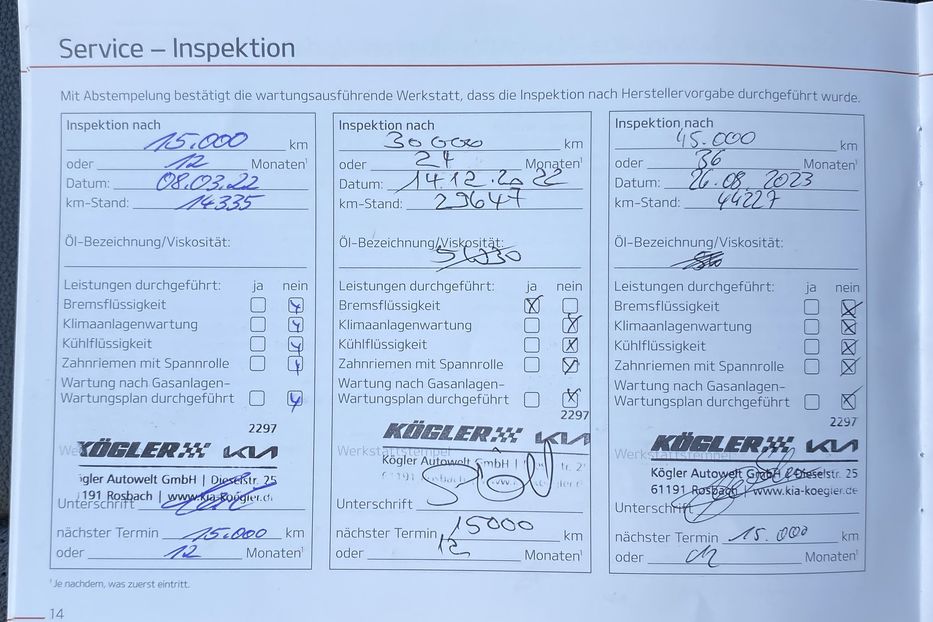 Service – Inspektion
Mit Abstempelung bestätigt die wartungsausführende Werkstatt, dass die Inspektion nach Herstellervorgabe durchgeführt wurde.
Inspektion nach
15.000 km
oder 12 Monaten¹
Datum: 08.03.22
km-Stand: 14335
Öl-Bezeichnung/Viskosität:
Leistungen durchgeführt: ja nein
Bremsflüssigkeit
Klimaanlagenwartung
Kühlflüssigkeit
Zahnriemen mit Spannrolle
Wartung nach Gasanlagen-
Wartungsplan durchgeführt
2297
KÖGLER KIA
Kögler Autowelt GmbH | Dieselstr. 25
61191 Rosbach | www.kia-koegler.de
Unterschrift
nächster Termin 15.000 km
oder 12 Monaten¹
Inspektion nach
30000 km
oder 24 Monaten¹
Datum: 14.12.2022
km-Stand: 29647
Öl-Bezeichnung/Viskosität:
5W30
Leistungen durchgeführt: ja nein
Bremsflüssigkeit X
Klimaanlagenwartung X
Kühlflüssigkeit X
Zahnriemen mit Spannrolle X
Wartung nach Gasanlagen-
Wartungsplan durchgeführt X
2297
KÖGLER KIA
Werkstattstempel
Kögler Autowelt GmbH |
Unterschrift
nächster Termin 15000 km
oder 12 Monaten¹
Inspektion nach
45.000 km
oder 36 Monaten¹
Datum: 26.08.2023
km-Stand: 44227
Öl-Bezeichnung/Viskosität:
Leistungen durchgeführt: ja nein
Bremsflüssigkeit X
Klimaanlagenwartung X
Kühlflüssigkeit X
Zahnriemen mit Spannrolle X
Wartung nach Gasanlagen-
Wartungsplan durchgeführt X
2297
KÖGLER KIA
Werkstattstempel
Kögler Autowelt GmbH | Dieselstr. 25
61191 Rosbach | www.kia-koegler.de
Unterschrift
nächster Termin 15.000 km
oder 12 Monaten¹
¹Je nachdem, was zuerst eintritt.
14